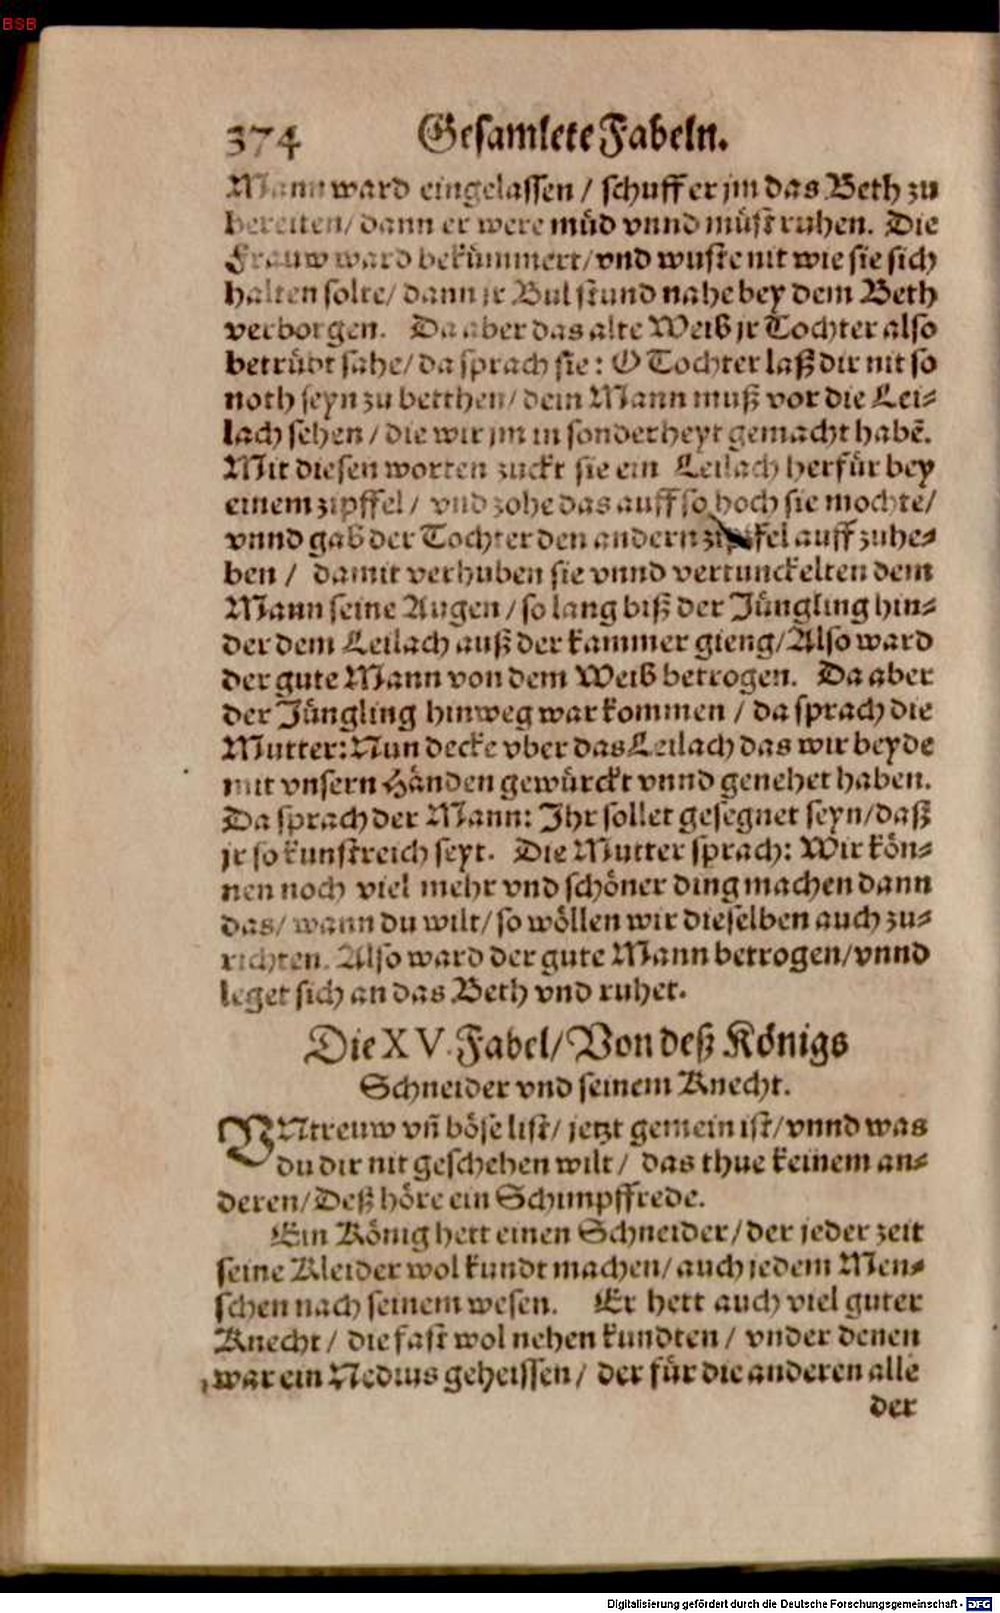 BSB
374 Gesamlete Fabeln.
Mann ward eingelassen / schuff er jm das Beth zu
bereiten / dann er were müd vnnd müst ruhen. Die
Frauw ward bekümmert / vnd wuste nit wie sie sich
halten solte / dann jr Bul stund nahe bey dem Beth
verborgen. Da aber das alte Weib jr Tochter also
betrübt sahe / da sprach sie: O Tochter laß dir nit so
noth seyn zu betthen / dein Mann muß vor die Lei-
lach sehen / die wir jm in sonderheyt gemacht habẽ.
Mit diesen worten zuckt sie ein Leilach herfür bey
einem zipffel / vnd zohe das auff so hoch sie mochte /
vnnd gab der Tochter den andern zipffel auff zuhe-
ben / damit verhuben sie vnnd vertunckelten dem
Mann seine Augen / so lang biß der Jüngling hin-
der dem Leilach auß der kammer gieng / Also ward
der gute Mann von dem Weib betrogen. Da aber
der Jüngling hinweg war kommen / da sprach die
Mutter: Nun decke vber das Leilach das wir beyde
mit vnsern Händen gewürckt vnnd genehet haben.
Da sprach der Mann: Ihr sollet gesegnet seyn / daß
jr so kunstreich seyt. Die Mutter sprach: Wir kön-
nen noch viel mehr vnd schöner ding machen dann
das / wann du wilt / so wöllen wir dieselben auch zu-
richten. Also ward der gute Mann betrogen / vnnd
leget sich an das Beth vnd ruhet.
Die XV. Fabel / Von deß Königs
Schneider vnd seinem Knecht.
VNtreuw vñ böse list / jetzt gemein ist / vnnd was
du dir nit geschehen wilt / das thue keinem an-
deren / Deß höre ein Schimpffrede.
Ein König hett einen Schneider / der jeder zeit
seine Kleider wol kundt machen / auch jedem Men-
schen nach seinem wesen. Er hett auch viel guter
Knecht / die fast wol nehen kundten / vnder denen
war ein Nedius geheissen / der für die anderen alle
der
Digitalisierung gefördert durch die Deutsche Forschungsgemeinschaft - DFG